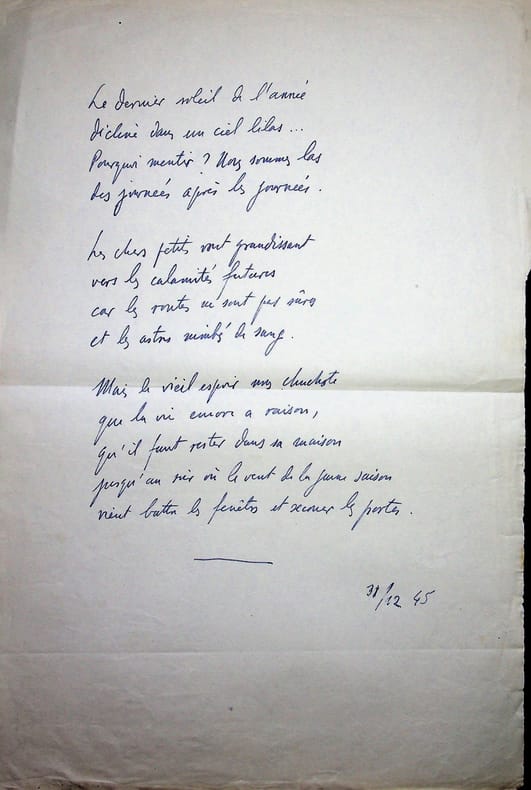 Le dernier soleil de l'année
décline dans un ciel lilas...
Pourquoi mentir ? Nous sommes las
des journées après les journées.
Les chers petits vont grandissant
vers les calamités futures
car les routes ne sont pas sûres
et les astres nimbés de sang.
Mais le vieil espoir nous chuchote
que la vie encore a raison,
qu'il faut rester dans sa maison
jusqu'au soir où le vent de la jeune saison
vient battre les fenêtres et secouer les portes.
31/12 45